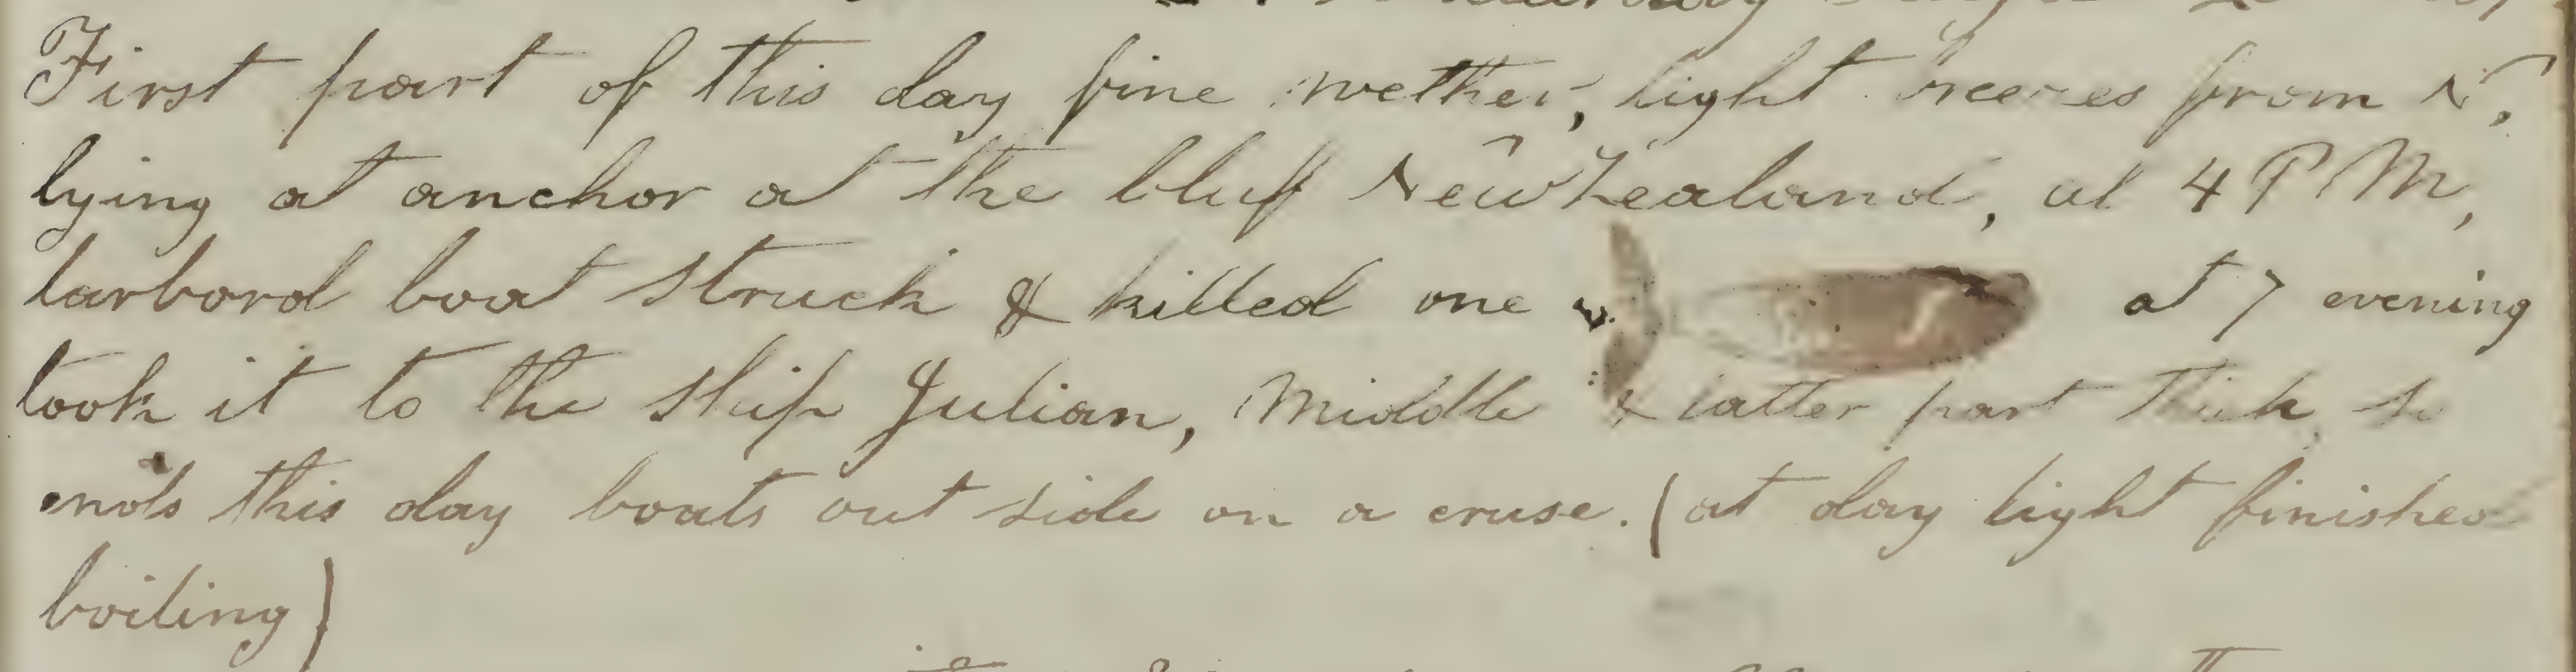 First part of this day fine wether, light breezes from N,
lying at anchor at the bluff New Zealand, at 4 PM,
larbord boat struck & killed one at 7 evening
took it to the ship Julian, Middle & latter part thick, so
ends this day boats out side on a cruse. (at day light finished
boiling)